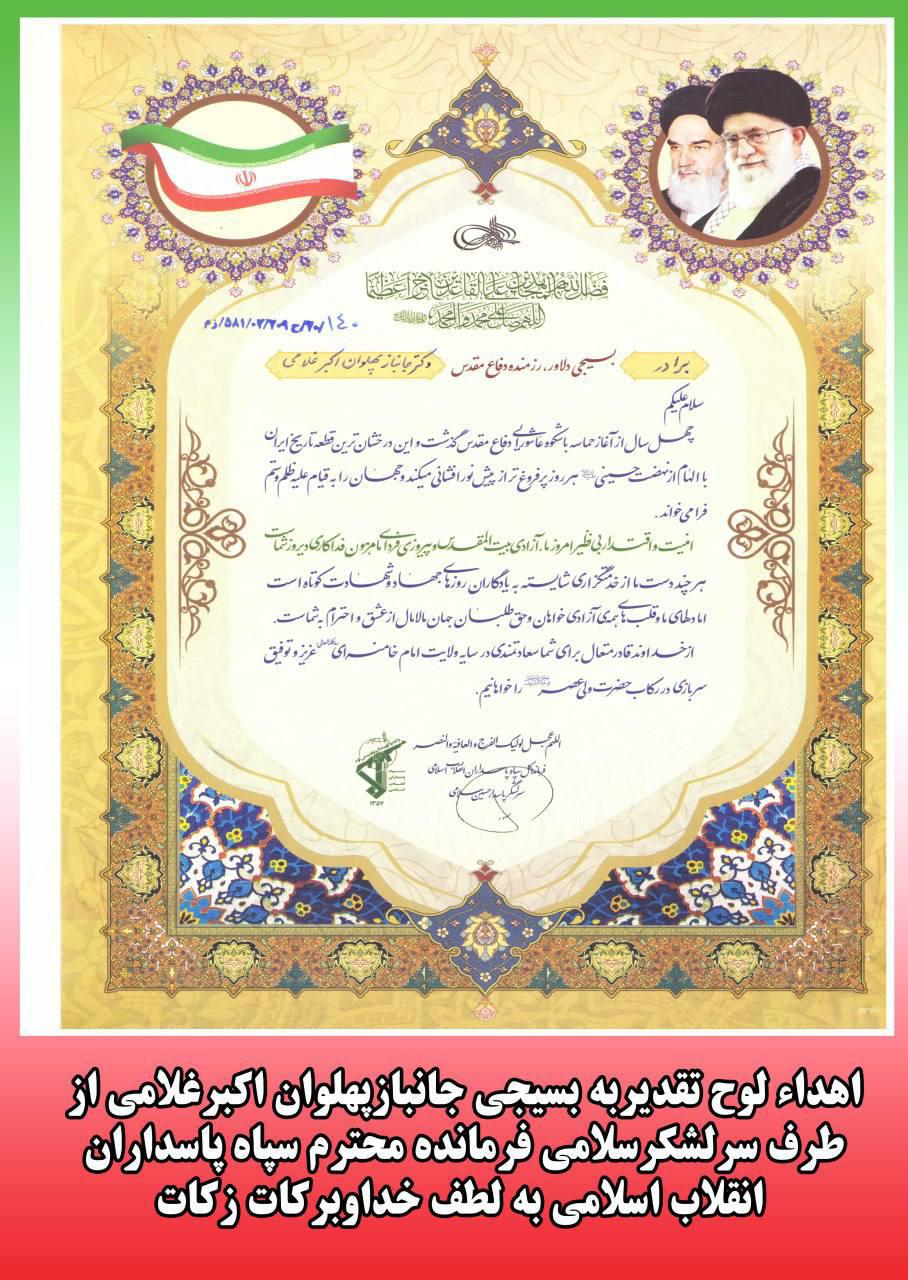 فضل الله المجاهدین علی القاعدین اجرا عظیما
اللهم صل علی محمد و آل محمد
برادر بسیجی دلاور، رزمنده دفاع مقدس دکتر جانباز پهلوان اکبر غلامی
سلام علیکم
چهل سال از آغاز حماسه باشکوه عاشورایی دفاع مقدس گذشت و این درخشان ترین قطعه تاریخ ایران
با الهام از نهضت حسینی هر روز پرفروغ تر از پیش نورافشانی میکند و جهان را به قیام علیه ظلم و ستم
فرا می خواند.
امنیت و اقتدار بی نظیر امروز ما، آزادی بیت المقدس و پیروزی فردای ما مرهون فداکاری دیروز شماست
هر چند دست ما از خدمتگزاری شایسته به یادگاران روزهای جهاد و شهادت کوتاه است
اما دلهای ما و قلب های همه ی آزادی خواهان و حق طلبان جهان مالامال از عشق و احترام به شماست.
از خداوند قادر متعال برای شما سعادتمندی در سایه ولایت امام خامنه ای عزیز و توفیق
سربازی در رکاب حضرت ولی عصر را خواهانیم.
اللهم عجل لولیک الفرج و العافیة و النصر
فرمانده کل سپاه پاسداران انقلاب اسلامی
سرلشگر پاسدار حسین سلامی
سپاه
پاسداران
انقلاب
اسلامی
۱۳۵۷
اهداء لوح تقدیربه بسیجی جانبازپهلوان اکبرغلامی از
طرف سرلشکرسلامی فرمانده محترم سپاه پاسداران
انقلاب اسلامی به لطف خداوبرکات زکات